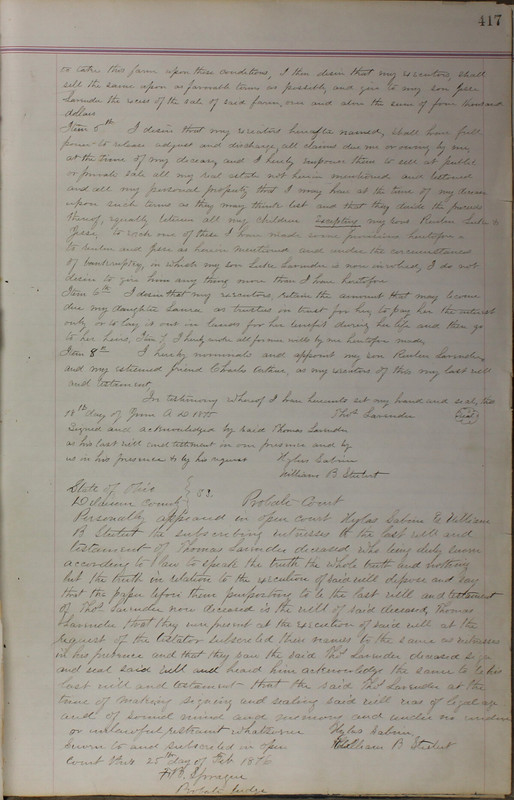 417
to take this farm upon these conditions, I then desire that my executors, shall
sell the same upon as favorable terms as possible, and give to my son Jesse
Lavender the excess of the sale of said farm, over and above the sum of four thousand
dollars
Item 5th I desire that my executors hereafter named, shall have full
power to release adjust and discharge, all claims due me or owing by me,
at the time of my decease, and I hereby empower them to sell at public
or private sale all my real estate not herein mentioned and
and all my personal property that I may have at the time of my decease
upon such terms as they may think best and that they divide the proceeds
thereof, equally between all my children Excepting my sons Reuben Luke &
Jesse, to each one of these I have made some provisions heretofore
to Reuben and Jesse as herein mentioned and under the circumstances
of bankruptcy, in which my son Luke Lavender is now involved, I do not
desire to give him any thing more than I have heretofore
Item 6th I desire that my executors, retain the amount that may become
due my daughter as trustees in trust for her, to pay her the interest
only or to lay it out in lands for her benefit during her life and then go
to her heirs, Item 7 I hereby revoke all former wills by me heretofore made,
Item 8th I hereby nominate and appoint my son Reuben Lavender,
and my esteemed friend Charles as my executors of this my last will
and testament,
In testimony whereof I have hereunto set my hand and seal, this
18th day of June A D Thos Lavender Seal
Signed and acknowledged by said Thomas Lavender
as his last will and testament in our presence and by
us in his presence & by his request Hylas Sabine
William B Sturket
State of Ohio
County SS. Probate Court
Personally appeared in open court Hylas Sabine & William
B Sturket the subscribing witnesses to the last will and
testament of Thomas Lavender deceased, who being duly sworn
according to law to speak the truth the whole truth and nothing
but the truth in relation to the execution of said will depose and say
that the paper before them purporting to be the last will and testament
of Thos Lavender now deceased is the will of said deceased, Thomas
Lavender that they were present at the execution of said will at the
request of the testator subscribed their names to the same as witnesses
in his presence and that they saw the said Thos Lavender deceased sign
and seal said will and heard him acknowledge the same to be his
last will and testament that the said Thos Lavender at the
time of making signing and sealing said will was of legal age
and of sound mind and memory and under no undue
or unlawful restraint whatsoever Hylas Sabine
Sworn to and subscribed in open William B Sturket
Court this 25th day of Feb 1876
Sprague
Probate Judge